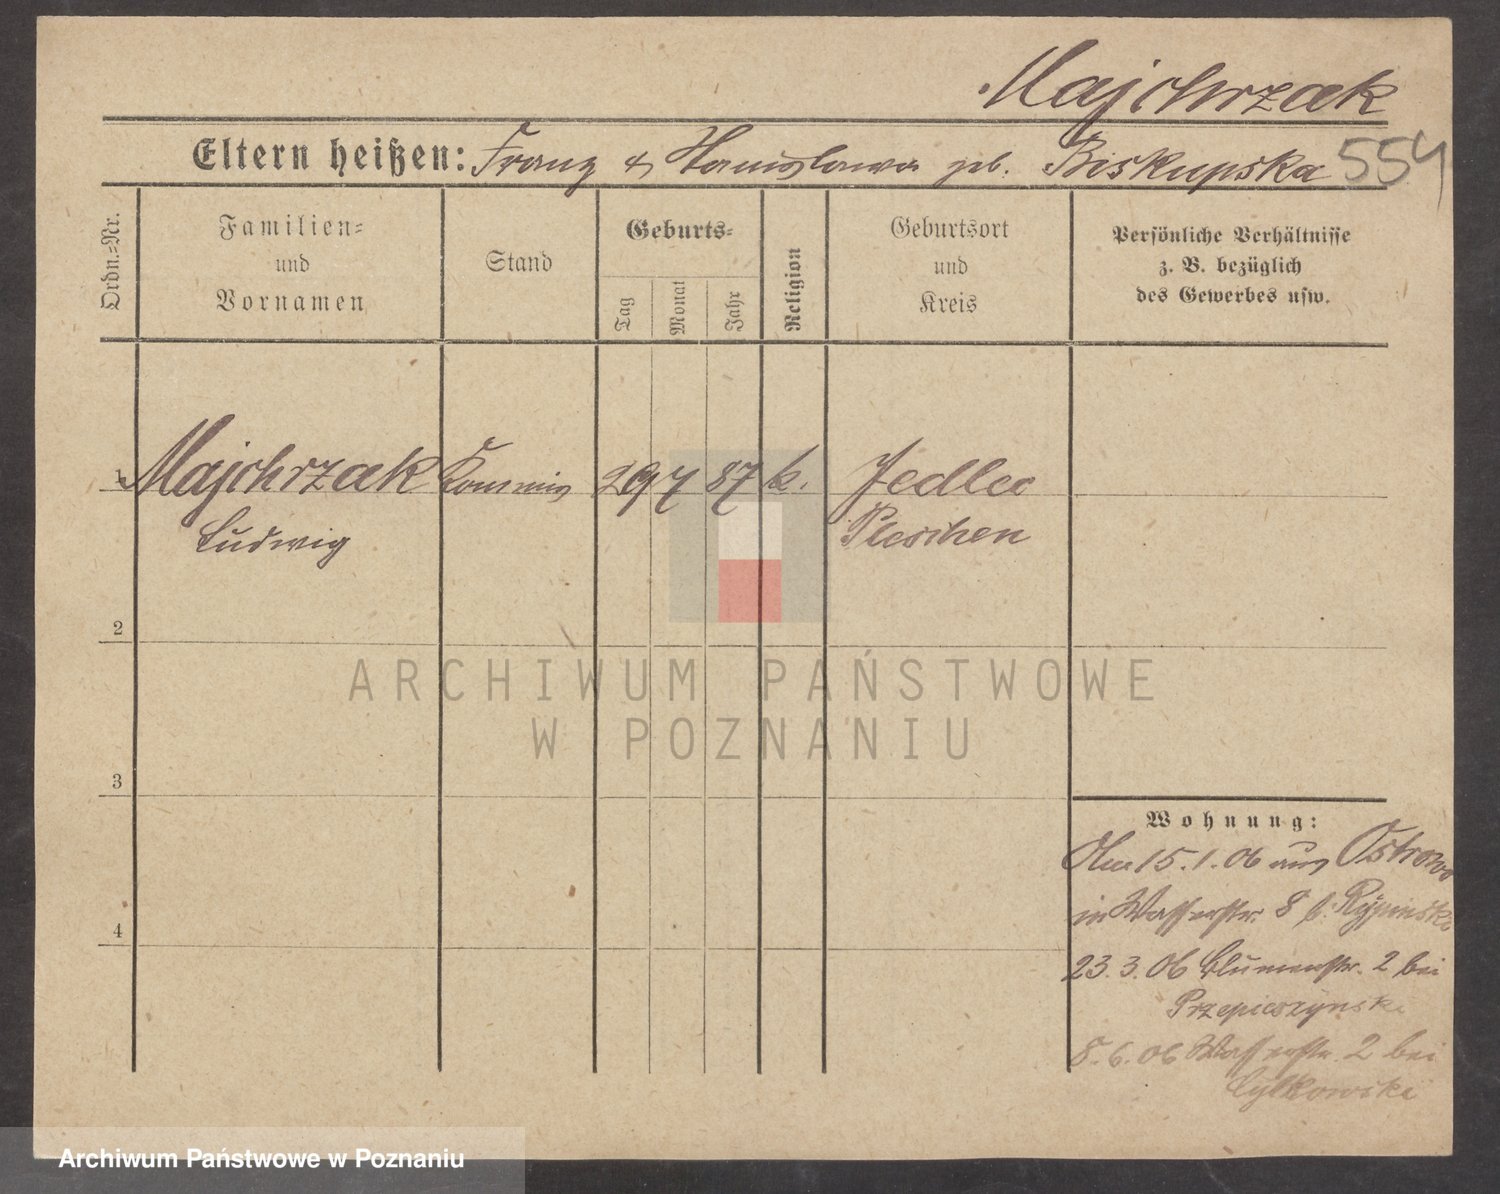 Majchrzak
Eltern heißen: Franz & Stanislawa geb. Biskupska 554
Ordn.-Nr.
Familien- und Vornamen
Stand
Geburts-
Tag
Monat
Jahr
Religion
Geburtsort und Kreis
Persönliche Verhältnisse
z. B. bezüglich
des Gewerbes usw.
1 Majchrzak Kommis 29 7 87 k. Jedlec
Ludwig Pleschen
2
ARCHIWUM PAŃSTWOWE
W POZNANIU
3
Wohnung:
15.1.06 aus Ostrowo
in Wasserstr. 8 b. Rypinski
4
23.3.06 Blumenstr. 2 bei
8.6.06 Wasserstr. 2 bei
Archiwum Państwowe w Poznaniu